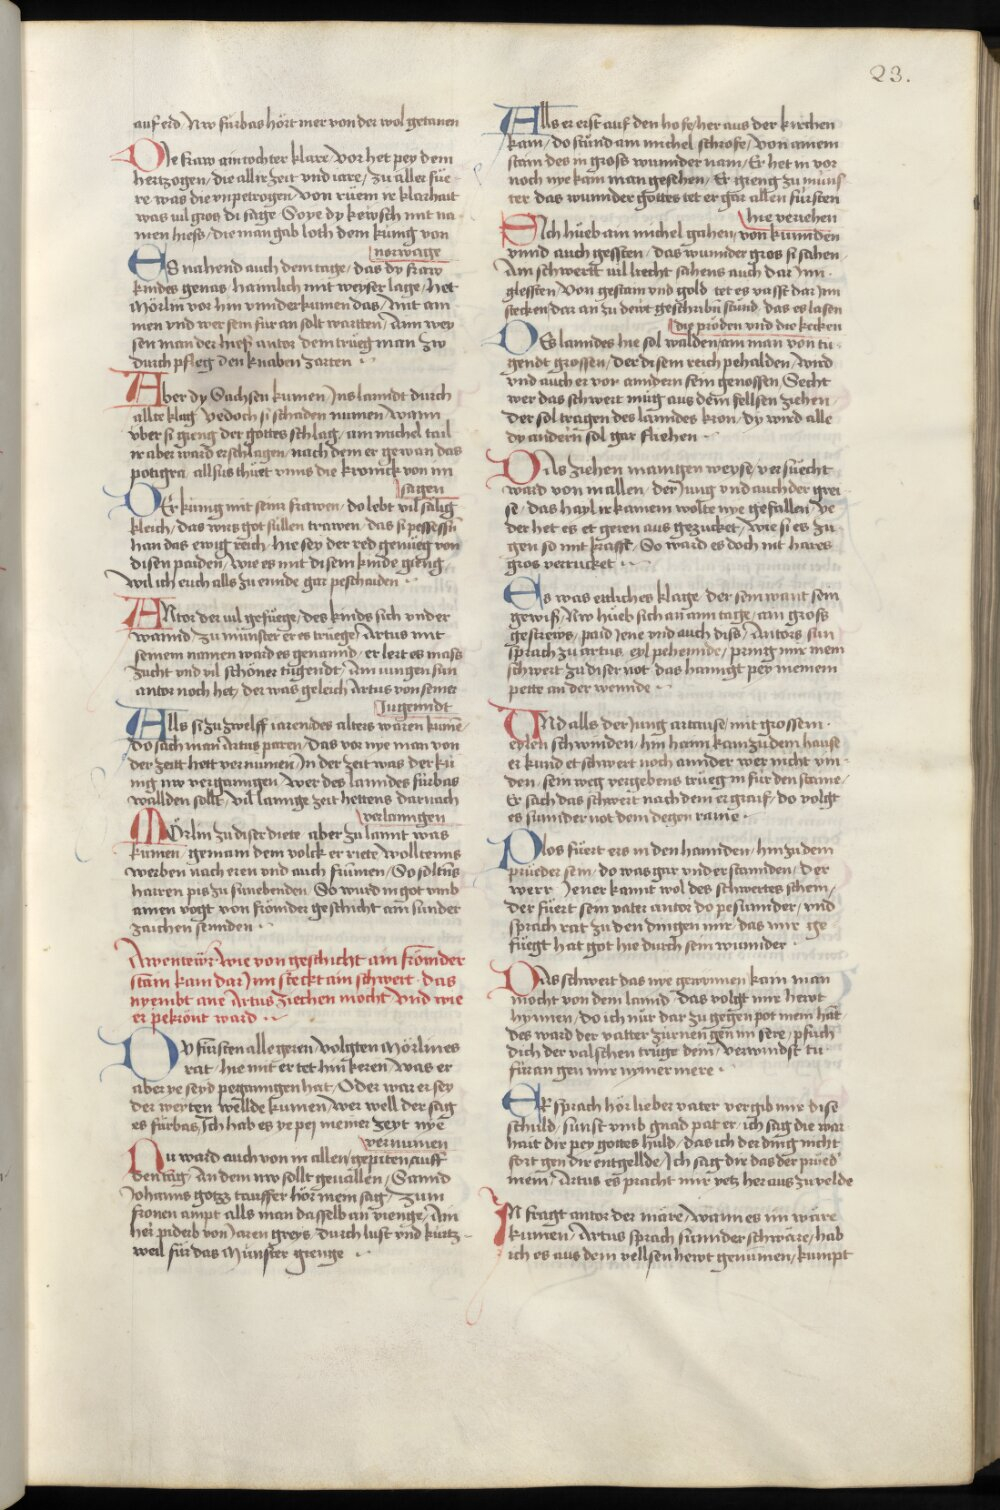 23.
auf erd Nw fürbas hört mer von der wol getanen
Die fraw ain tochter klare / vor het pey dem
hertzogen / die all ir zeit vnd iare / zu aller füe
re was die vnpetrogen / von rüem ir klarhait
was vil gros di sage So ye dy kewsch mit na
men hiess / die man gab loth dem künig von
norwage
Es nahend auch dem tage / das dy fraw
kindes genas / haimlich mit weyser lage / het
Mörlin vor hin vnnder kumen das / Mit am
men vnd wer sein für an solt wartten / Ainn wey
sen man der hiess antor dem trüeg man zw
durch pfleg den knaben zarten
Aber dy Sachsen kumen / Ins lanndt durch
allte klag / yedoch si schaden numen / wann
über si gieng der gottes schlag / ain michel tail
ir aber ward erschlagen / nach dem er gewan das
potigra / allsus thüet vnns die kronick von im
sagen
Der künig mit sein frawen / do lebt vil sälig
kleich / das wirs got süllen trawen / das si pessessn
han das ewig reich / hie sey der red genüeg von
disen paiden / wie es mit disem kinde gieng
wil ich euch alls zu ennde gar peschaiden
Antor der vil gefüege / des kinds sich vnder
wannd / zu münster er es trüege / Artus mit
seinem namen ward es genannd / er lert es mass
zucht vnd vil schöner tugendt / Ain iungen sun
antor noch het / der was geleich Artus von seiner
Jugenndt
Alls si zu zwelff iaren des alters waren kume
do sach man Artus paren / das vor nye man von
der zeitt hett vernumen / In der zeit was der kü
nig nw vergangen / wer des lanndes fürbas
wallden sollt / vil lannge zeit hettens darnach
verlanngen
Mörlin zu diser diete aber zu lannt was
kumen / gemain dem volck er riete / wollt enns
werben nach eren vnd auch frümen / So soltns
harren pis zu sunebenden / So wurd in got vmb
ainen vogt von frömder geschicht ain sunder
zaichen sennden
Awentewr wie von geschicht ain frömder
stain kam dar Inn steckt ain schwert das
nyembt ane Artus ziechen mocht vnd wie
er pekrönt ward
Dy fürsten alle geren / volgten Mörlines
rat / hie mit er tet hin keren / was er
aber ye seyd pegangen hat / Oder war er sey
der werten wellde kumen / wer well der sag
es fürbas / Ich hab es ye pey meiner zeyt nye
vernumen
Nu ward auch von in allen / gepiten / auff
den tag / An dem nw sollt geuallen / Sannd
Johanns gotzz tauffer hör mein sag / Zum
fronen ampt alls man dasselb an vienge / Ain
her piderb von Jaren greys / durch lust vnd kurtz
weil für das Münster gienge
Alls er erst auf den hofe / her aus der kirchen
kam / do stünd ain michel schrofe / von ainem
stain des in gross wunnder nam / Er het in vor
noch nye kain man gesehen / Er gieng zu müns
ter das wunnder gottes tet er gar allen fürsten
hie veriehen
Sich hüeb ain michel gahen / von kunnden
vnnd auch gessten / das wunnder gros si sahen
Ain schwertt vil lrecht sahens auch dar Inn
glessten / von gestain vnd gold tet es vasst dar Inn
stecken / dar an zu dewt geschribn stünd / das es lasen
die pröden vnd die kecken
Des lanndes hie sol walden / ain man von tu
gendt grossen / der disem reich pehalden / wird
vnd auch er vor anndern sein genossen / Secht
wer das schwert müg aus dem fellsen ziehen
der sol tragen des lanndes kron / dy wird alle
dy andern sol gar fliehen
Das ziehen manigen weyse / versuecht
ward von in allen / der Jung vnd auch der grei
se / das hayl ir kainem wolte nye gefallen / ye
der het es et geren aus gezucket / wie si es zu
gen so mit krafft / So ward es doch nit hares
gros verrucket
Es was ettliches klage / der sein want sein
gewiss / Nw hüeb sich an ainn tage / ain gross
gestrews / paid Jene vnd auch diss / Antors sun
sprach zu artus / eyl pehennde / pring mir mein
schwert zu diser not das hanngt pey meinem
pette an der wennde
Vnd alls der Jung artause / mit grossem
edlen schwinden / hin haim kam zu dem hause
er kund et schwert noch annder wer nicht vin
den / sein weg vergebens trüeg in für den staine /
Er sach das schwert nach dem er graif / do volgt
es sunnder not dem degen raine
Plos füert ers in den hannden / hin zu dem
prüeder sein / do was gar vnderstannden / der
werr / Jener kannt wol des schwertes schein /
der füert sein vater antor do pesunnder / vnd
sprach rat zu den dingen mir / das mir ge
füegt hat got hie durch sein wunnder
Das schwert das nye gewinnen kain man
mocht von dem lannd / das volgt mir hewt
hynnen / do ich nür dar zu gegen pot mein hannt
des ward der vatter zürnen gen im sere / pfuch
dich der valschen trüge dein / verwindst tu
für an gen mir nymermere
Er sprach hör lieber vater vergib mir dise
schuld / sunst vmb gnad pat er / ich sag die war
hait dir pey gottes huld / das ich der ding nicht
fort gen dir entgellde / Ich sag dir das der prüed
mein / Artus es pracht mir yetz her aus zu velde
In fragt antor der märe / wann es im wäre
kumen / Artus sprach sunnder schwäre / hab
ich es aus dem vellsen hewt genumen / kumpt